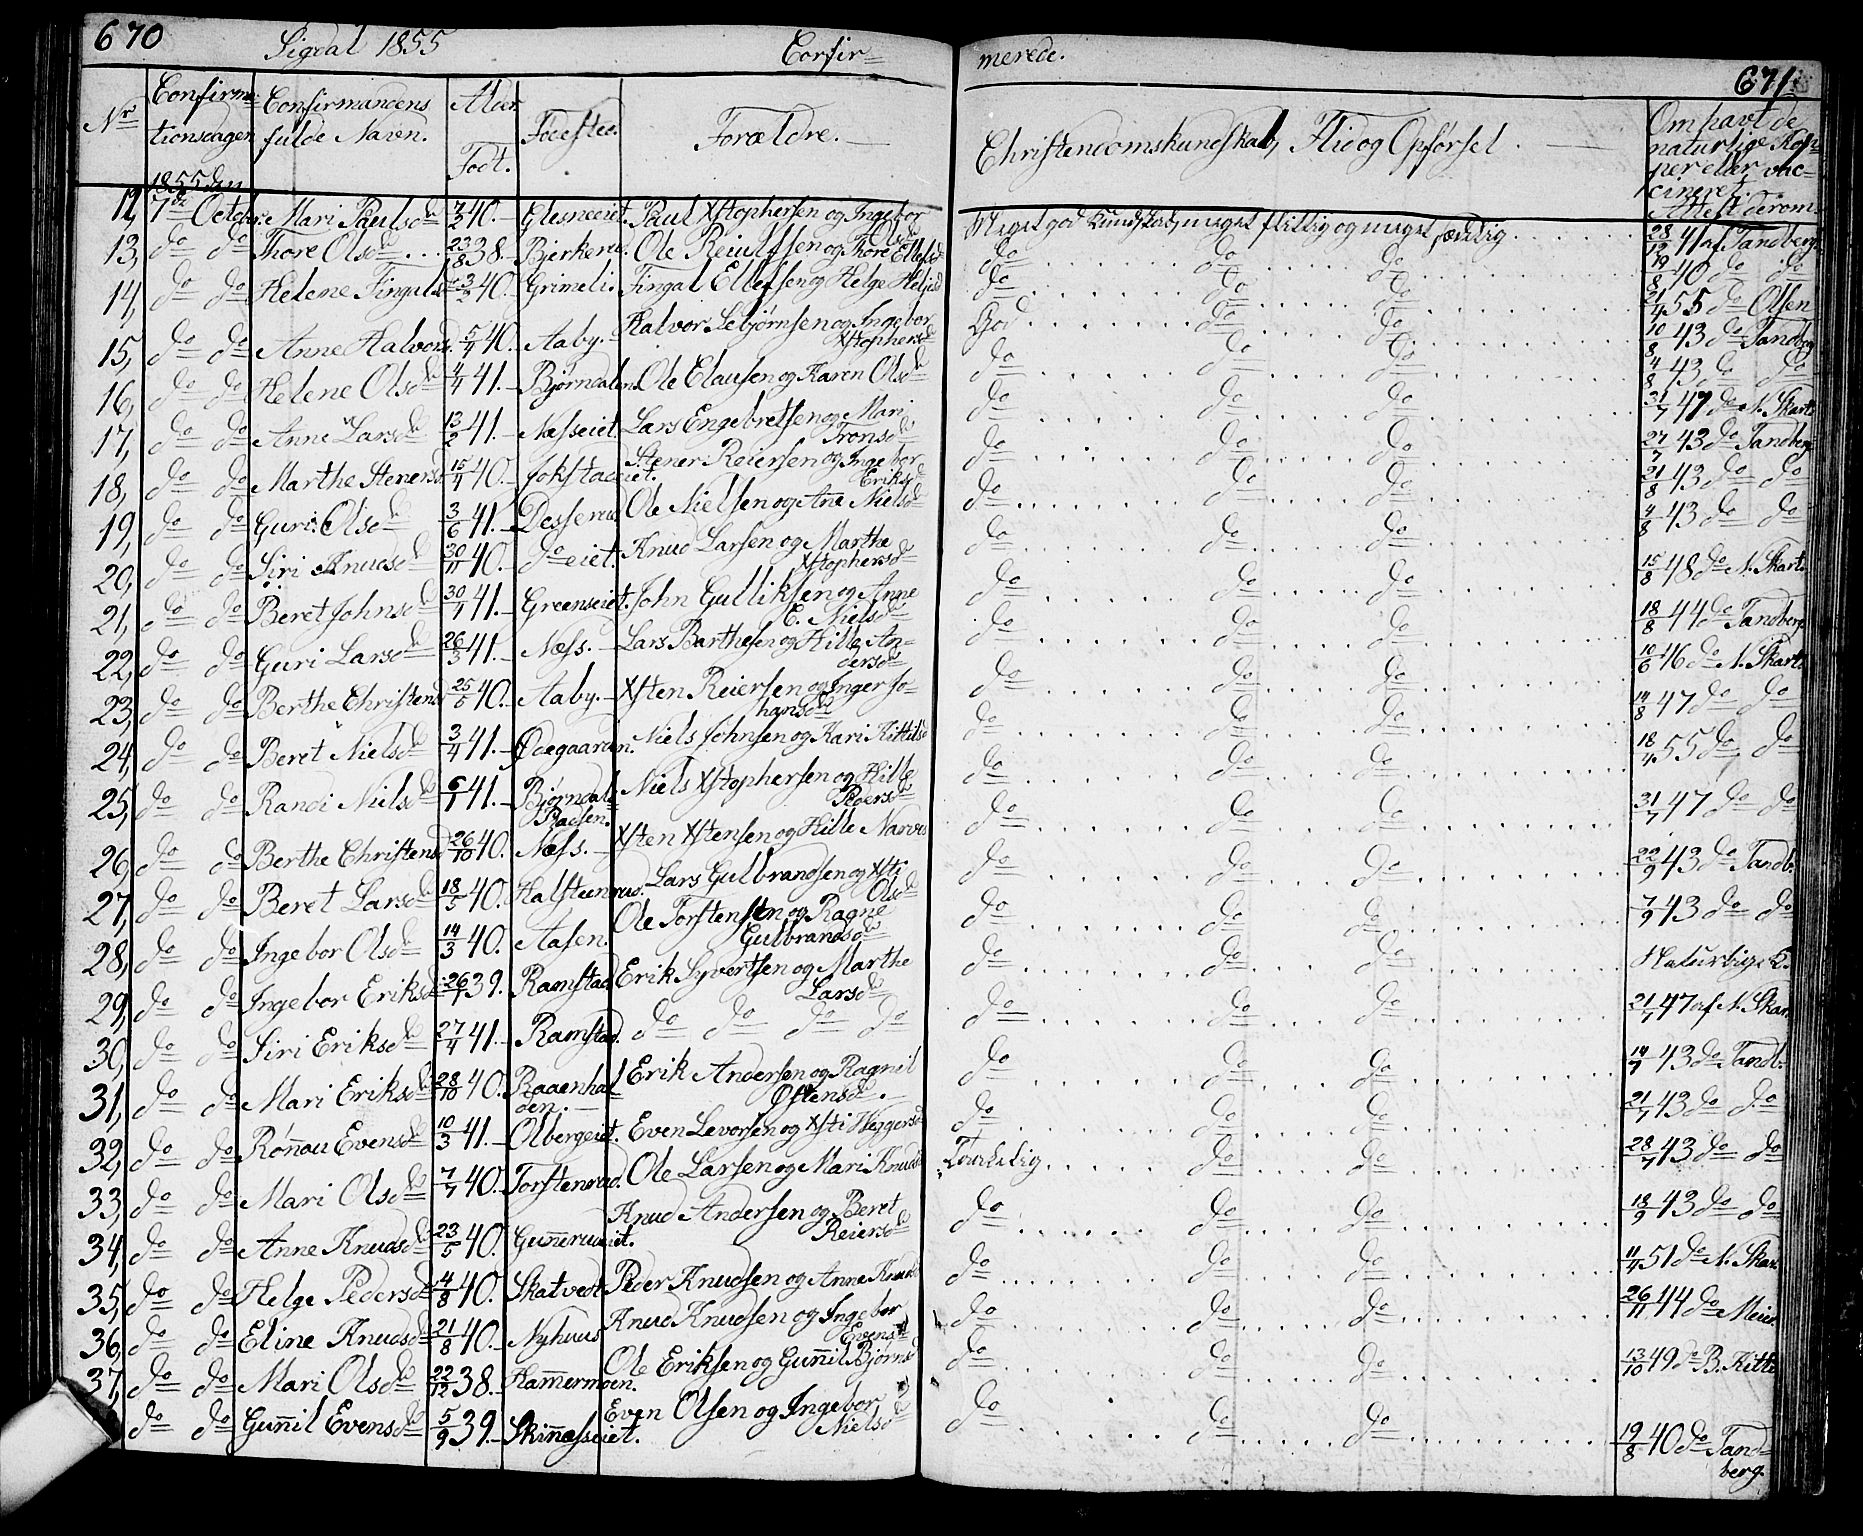 670
Sigdal 1855
Confir=
merede.
671.
Nr
Confirma-
tionsdagen
Confirmandens
fulde Navn.
Alder
Födt.
Födested.
Forældre.
Christendomskundskab, Flid og Opførsel.
Om havt de
naturlige Kop-
per eller vac-
cineret.
Attest derom.
1855 den
12, 7de Octobr: Mari Paulsd 7/2 40. Glesneeiet. Paul Xstophersen og Ingebor Olsd Meget god Kundskab, meget flittig og meget sædelig 28/12 41 af Tandberg
13, do do Thore Olsd 23/8 38. Bjerkerud. Ole Reiulfsen og Thore Ellefsd do do do 19/8 40 do do
14, do do Helene Fingalsd 3/2 40. Grimeli. Fingal Ellefsen og Helge Helgesd do do do 21/4 55 do Olsen
15, do do Anne Halvorsd. 5/4 40. Aaby. Halvor Lebjørnsen og Ingebor Xstophersd God do do 10/8 43 do Tandberg
16, do do Helene Olsd 4/4 41. Bjørndalen. Ole Clausen og Karen Olsd do do do 4/8 43 do do
17, do do Anne Larsd 13/2 41. Næsseiet. Lars Engebretsen og Mari Tronsd do do do 31/7 47 do N. Skarts
18, do do Marthe Stenersd 15/4 40. Jokstadeiet. Stener Reiersen og Ingebor Eriksd do do do 27/7 43 do Tandberg
19, do do Guri Olsd 3/6 41. Desserud. Ole Nielsen og Ane Nielsd do do do 21/8 43 do do
20, do do Siri Knudsd 30/11 40. do eiet. Knud Larsen og Marthe Xstophersd do do do 4/8 43 do do
21, do do Beret Johnsd 30/1 41. Greenseiet. John Gulliksen og Anne C. Nielsd do do do 15/8 48 do N. Skarts
22, do do Guri Larsd 26/3 41. Næss. Lars Barthesen og Hille Andersd do do do 18/8 44 do Tandberg
23, do do Berthe Christensd 25/5 40. Aaby. Xsten Reiersen og Inger Johansd do do do 10/6 46 do N. Skarts
24, do do Beret Nielsd 3/4 41. Ødegaarden. Niels Johnsen og Kari Kittilsd do do do 14/8 47 do do
25, do do Randi Nielsd 6/1 41. Bjørndalsbraaten. Niels Xstophersen og Hille Pedersd do do do 18/4 55 do do
26, do do Berthe Christensd 26/10 40. Næss. Xsten Xstensen og Hille Narves do do do 31/7 47 do do
27, do do Beret Larsd 18/5 40. Halsteenrud. Lars Gulbrandsen og Xsti Olsd do do do 22/9 43 do Tandb.
28, do do Ingebor Olsd 14/3 40. Aasen. Ole Torstensen og Ragne Gulbrandsd do do do 7/9 43 do do
29, do do Ingebor Eriksd 26/1 39. Ramstad Erik Syvertsen og Marthe Larsd do do do Naturlige K.
30, do do Siri Eriksd 27/4 41. Ramstad. do do do do do do do 21/7 47 af N. Skar
31, do do Mari Eriksd 28/10 40. Raaenhalden. Erik Andersen og Ragnil Østensd do do do 14/7 43 do Tandb.
32, do do Rønnau Evensd 10/3 41. Olbergeiet. Even Levorsen og Xsti Heggersd do do do 21/7 43 do do
33, do do Mari Olsd 7/7 40. Torstenrud. Ole Larsen og Mari Knudsd Taalelig do do 28/7 43 do do
34, do do Anne Knudsd 23/5 40. Gunnerudeiet. Knud Andersen og Beret Reiersd do do do 18/9 43 do do
35, do do Helge Pedersd 4/8 40. Skatvedt. Peder Knudsen og Anne Knudsd do do do 11/4 51 do N. Skar
36, do do Eline Knudsd 21/8 40. Nyhuus Knud Knudsen og Ingebor Evensd do do do 26/11 44 do Meier
37, do do Mari Olsd 22/12 38. Hammermoen. Ole Eriksen og Gunnil Bjørnsd do do do 13/10 49 do B. Kitti
do do Gunnil Evensd 5/9 39. Skinnesseiet. Even Olsen og Ingebor Nielsd do do do 19/8 40 do Tandberg.